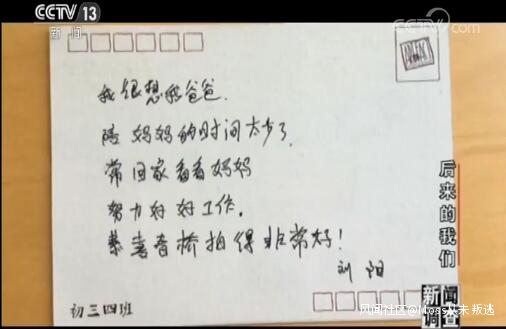 CCTV 13
新闻
央视网
我很想我爸爸.
陪妈妈的时间太少了.
常回家看看妈妈
努力好好工作.
恭喜音桥拍得非常好！
刘阳
初三四班
后来的我们
新闻调查
风闻社区@Moss从未叛逃